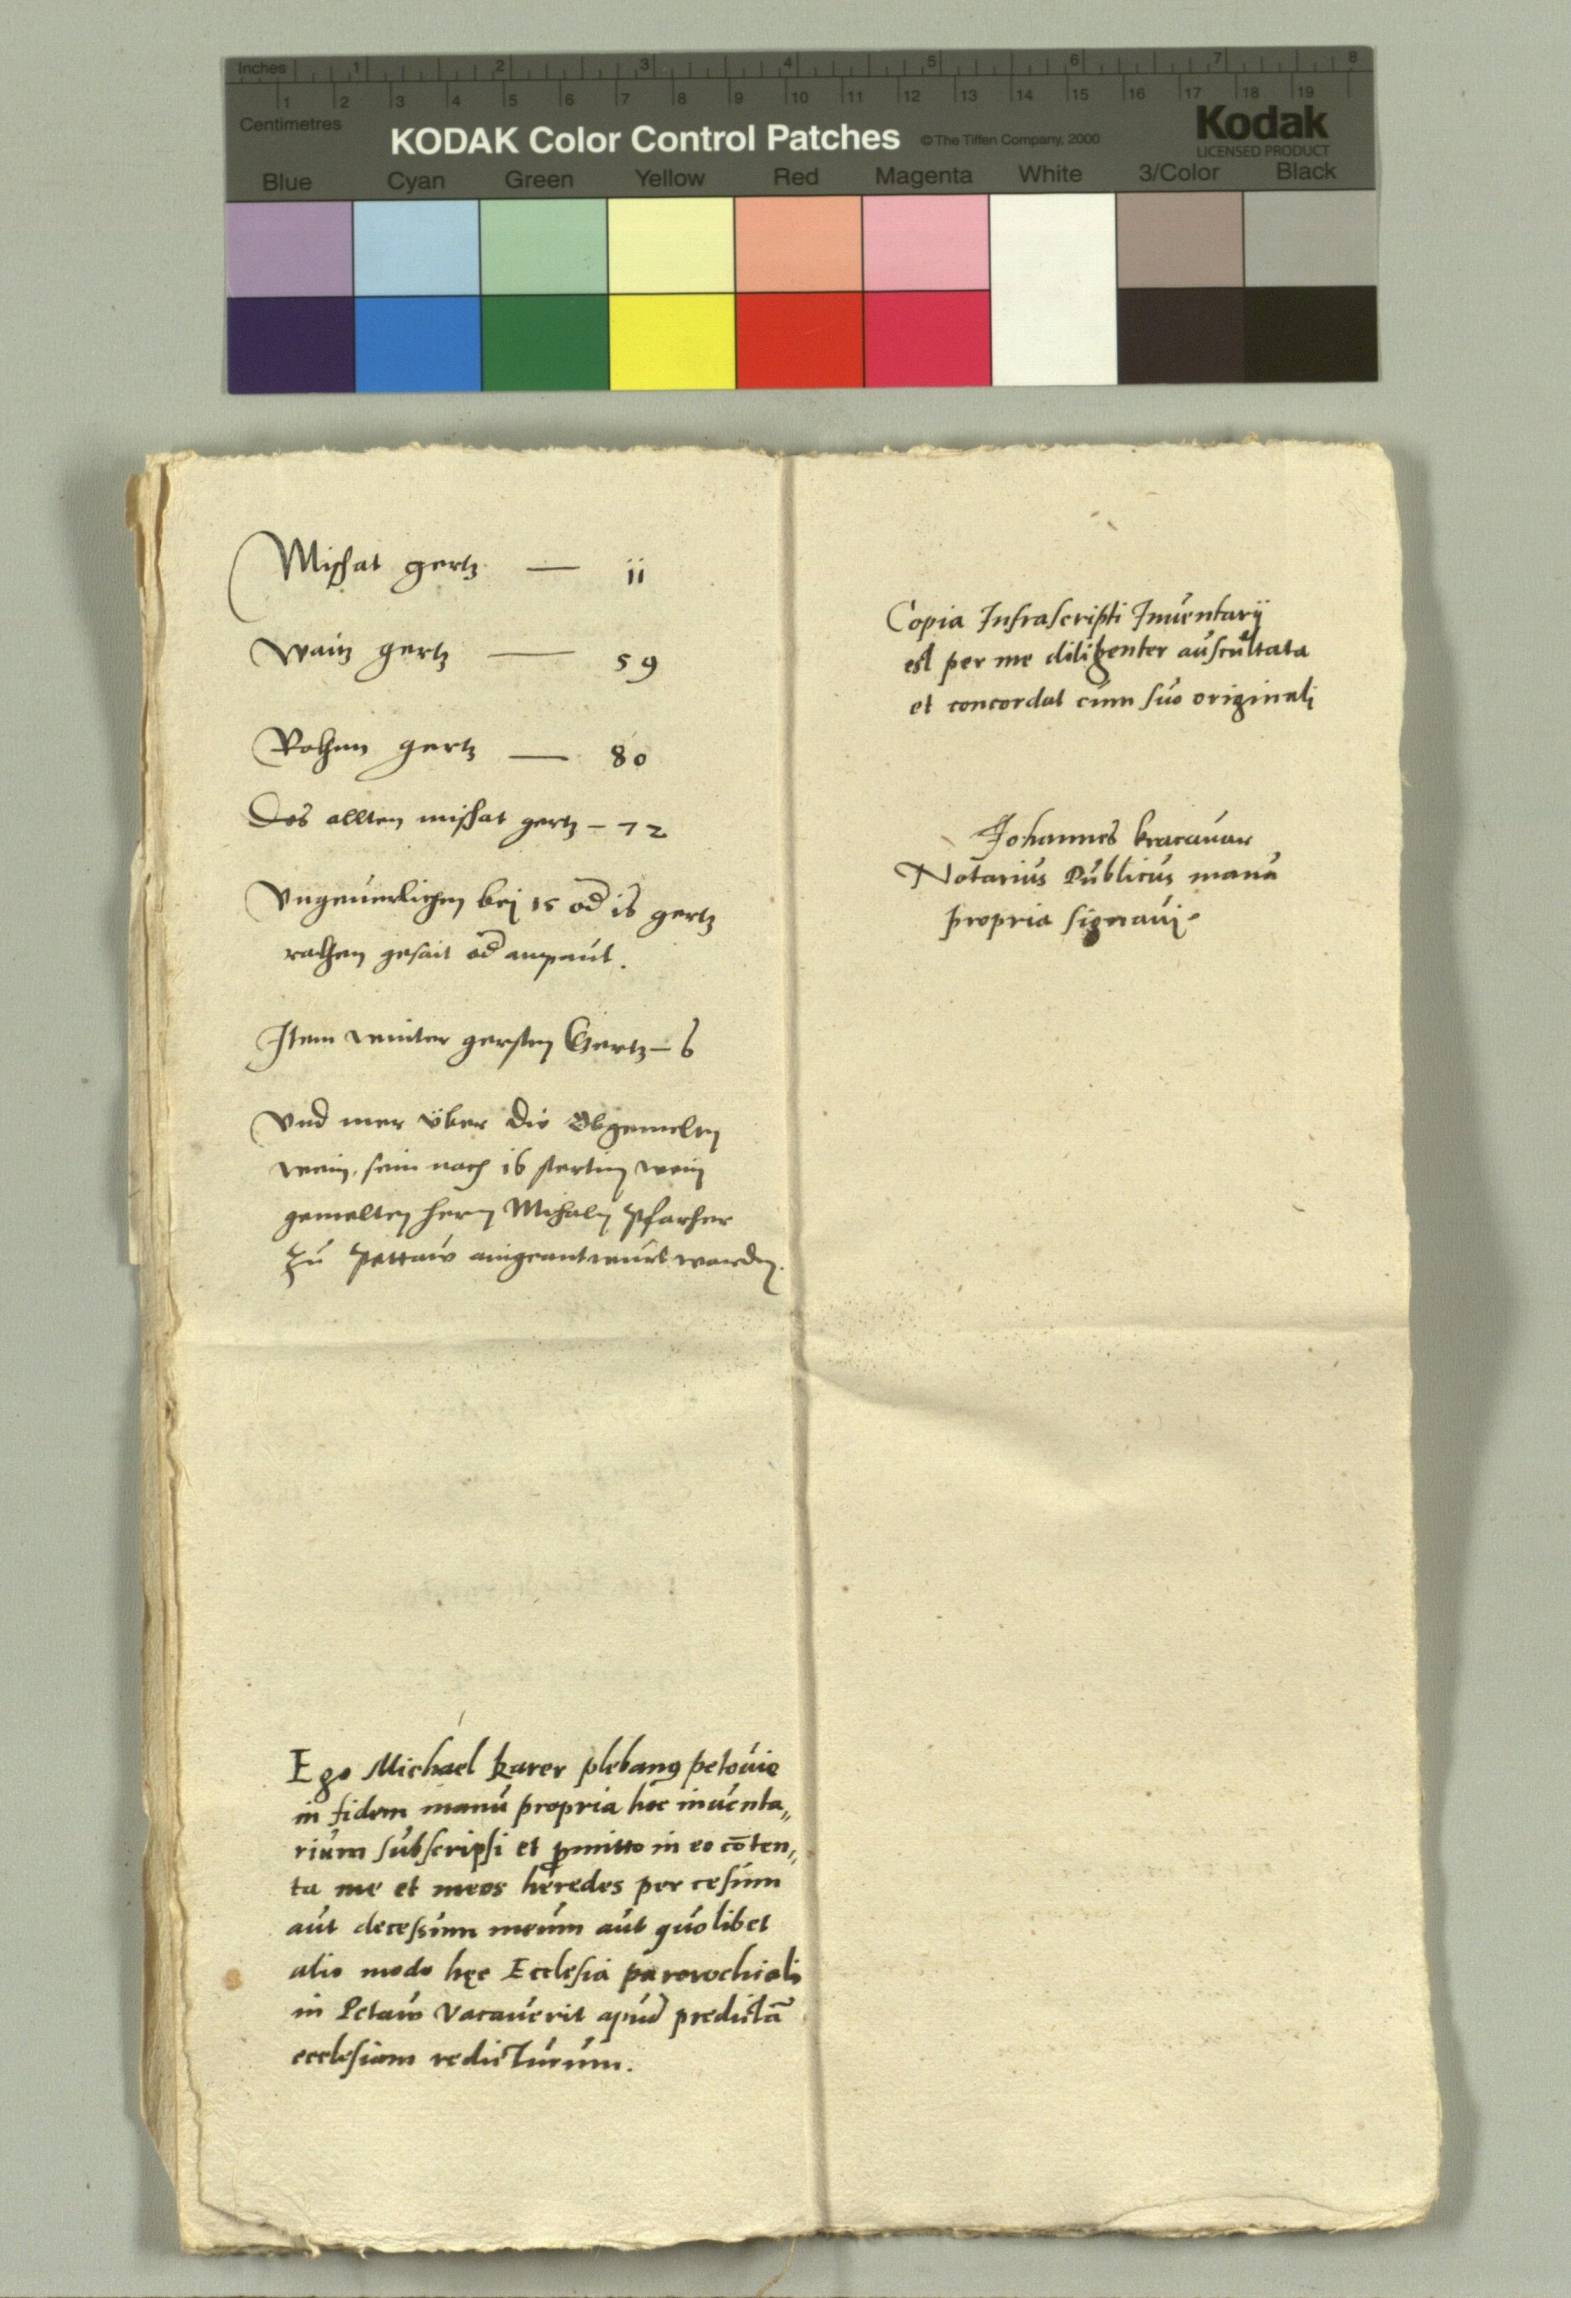 Inches 1 2 3 4 5 6 7 8
1 2 3 4 5 6 7 8 9 10 11 12 13 14 15 16 17 18 19
Centimetres
KODAK Color Control Patches © The Tiffen Company, 2000 Kodak
LICENSED PRODUCT
Blue Cyan Green Yellow Red Magenta White 3/Color Black
Mischat gertz — ii
Waitz gertz — 59
Rokhen gertz — 80
Des allten mischat gertz – 72
Vngeuerlichen bei 15 od 16 gertz
rakhen gesait od anpaut.
Item winter gersten Gertz – 6
Vnd mer über die Obgemelten
wein, sein noch 16 startin wein
gemelten herrn Michaln Pfarher
zu Pettaw aingeantwurt worden.
Ego Michael karer plebanꝰ petouie
in fidem manu propria hoc inuenta„
rium subscripsi et ꝓmitto in eo cōten„
ta me et meos heredes per cesum
aut decessum meum aut quolibet
alio modo hęc Ecclesia parrochialis
in Petaw Vacauerit apud predictā
ecclesiam redicturum.
Copia Infrascripti Inuentarij
est per me diligenter auscultata
et concordat cum suo originali
Johannes kracauar
Notarius Publicus manu
propria signaui.